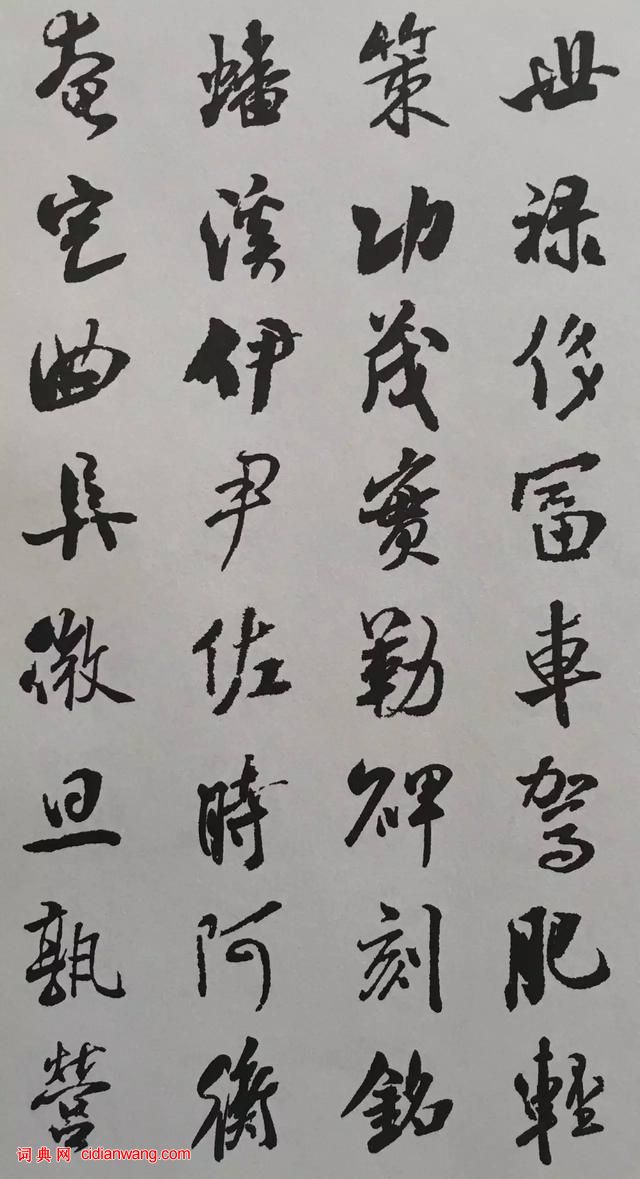 世禄侈富車駕肥輕
策功茂實勒碑刻銘
磻溪伊尹佐時阿衡
奄宅曲阜微旦孰營
词典网 cidianwang.com